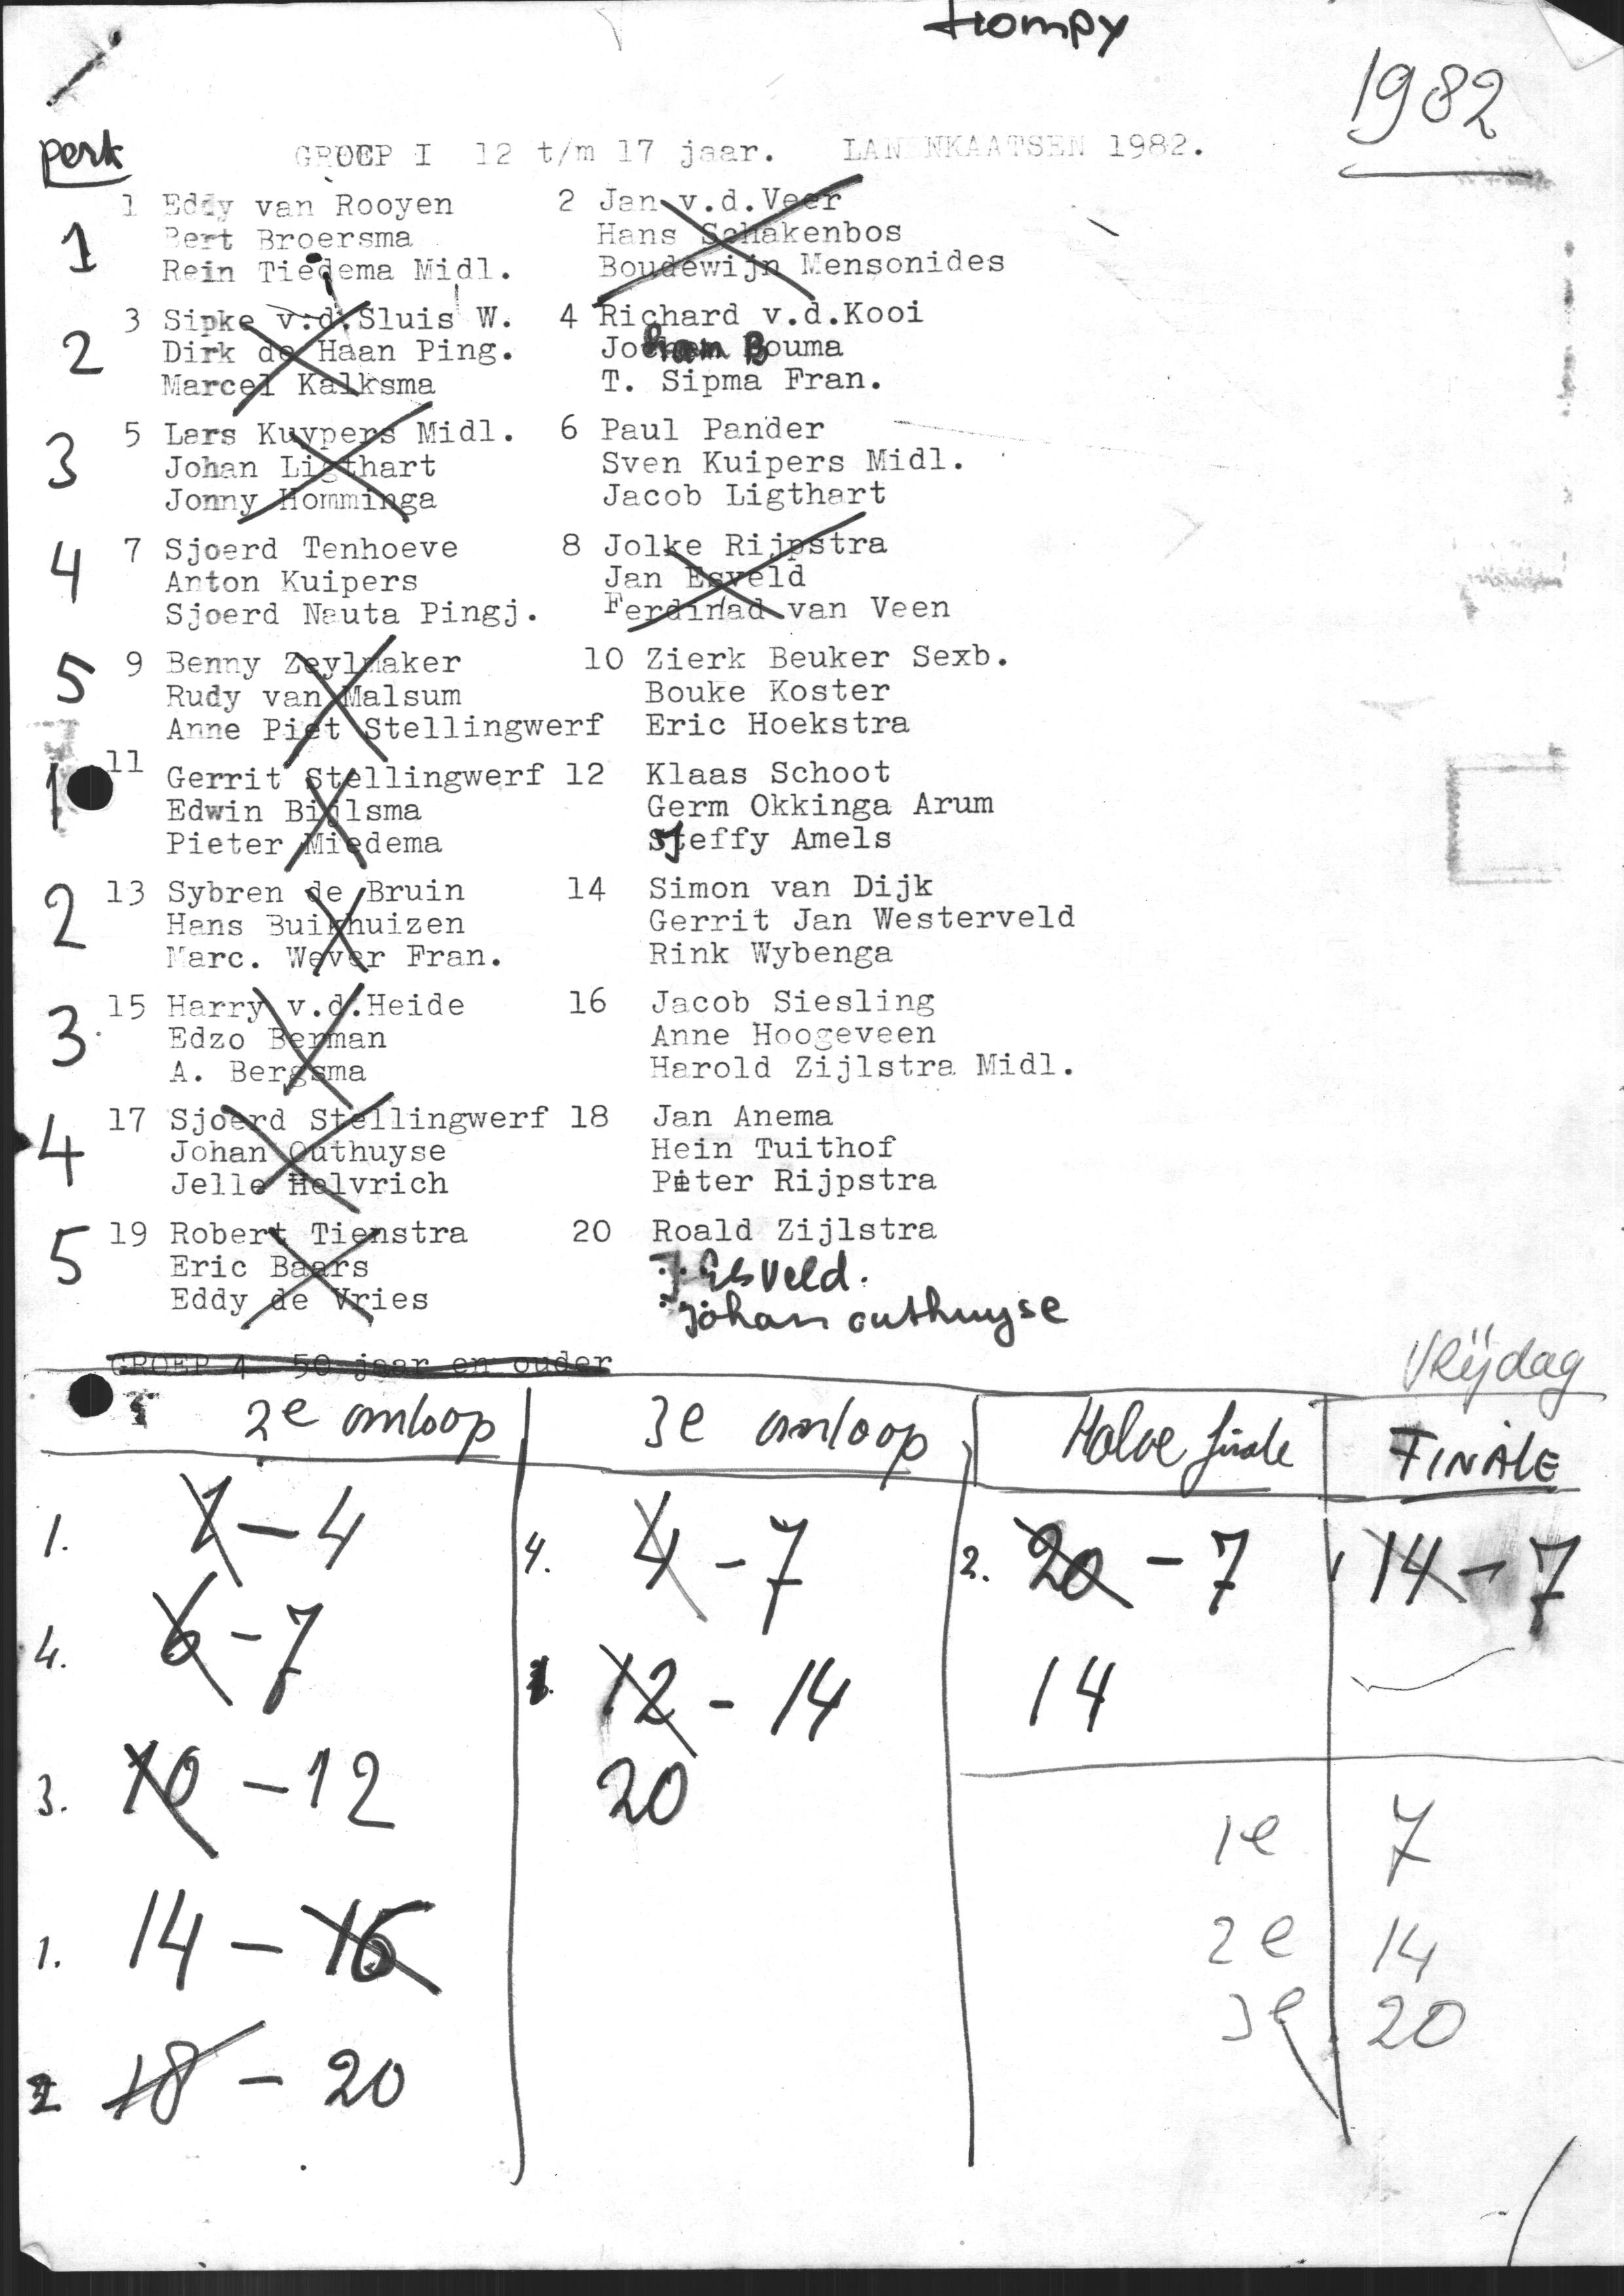 1982
perk
GROEP I 12 t/m 17 jaar. LANENKAATSEN 1982.
1 1 Eddy van Rooyen 2 Jan v.d.Veer
Bert Broersma Hans Schakenbos
Rein Tiedema Midl. Boudewijn Mensonides
2 3 Sipke v.d.Sluis W. 4 Richard v.d.Kooi
Dirk de Haan Ping. Jochem Bouma
Marcel Kalksma T. Sipma Fran.
3 5 Lars Kuypers Midl. 6 Paul Pander
Johan Ligthart Sven Kuipers Midl.
Jonny Homminga Jacob Ligthart
4 7 Sjoerd Tenhoeve 8 Jolke Rijpstra
Anton Kuipers Jan Esveld
Sjoerd Nauta Pingj. Ferdinad van Veen
5 9 Benny Zeylmaker 10 Zierk Beuker Sexb.
Rudy van Malsum Bouke Koster
Anne Piet Stellingwerf Eric Hoekstra
1 11 Gerrit Stellingwerf 12 Klaas Schoot
Edwin Bijlsma Germ Okkinga Arum
Pieter Miedema Sjeffy Amels
2 13 Sybren de Bruin 14 Simon van Dijk
Hans Buikhuizen Gerrit Jan Westerveld
Marc. Wever Fran. Rink Wybenga
3 15 Harry v.d.Heide 16 Jacob Siesling
Edzo Berman Anne Hoogeveen
A. Bergsma Harold Zijlstra Midl.
4 17 Sjoerd Stellingwerf 18 Jan Anema
Johan Outhuyse Hein Tuithof
Jelle Helvrich Piter Rijpstra
5 19 Robert Tienstra 20 Roald Zijlstra
Eric Baars J. Esveld.
Eddy de Vries Johan outhuyse
GROEP 4 50 jaar en ouder
Vrijdag
2e omloop 3e omloop Halve finale FINALE
1. 1 - 4 4. 4 - 7 2. 20 - 7 1 14 - 7
4. 6 - 7 1. 12 - 14 14
3. 10 - 12 20
1e 7
1. 14 - 16 2e 14
3e 20
2 18 - 20